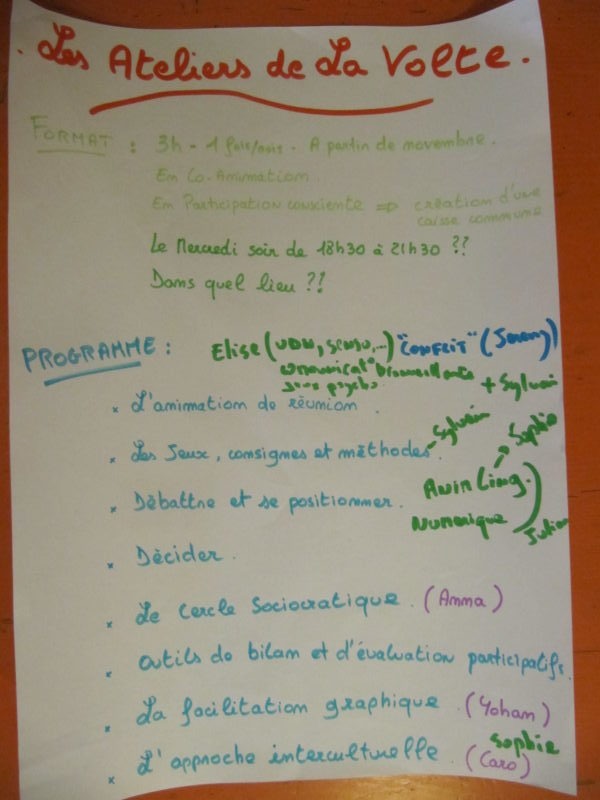 . Les Ateliers de La Volte .
FORMAT : 3h - 1 fois/mois . A partir de novembre .
En Co-Animation
En Participation consciente => création d'une caisse commune
Le Mercredi soir de 18h30 à 21h30 ??
Dans quel lieu ??
PROGRAMME : Elise ( ... ) "CONFLIT" (Jeremy)
communicat° bienveillante
+ Sylvain
x L'animation de réunion .
x Les Jeux, consignes et méthodes - Sylvain
→ Sophie
x Débattre et se positionner .
Anim Ling.
Numérique ) Julien
x Décider .
x Le cercle Sociocratique . (Anna)
x outils de bilan et d'évaluation participatifs.
x La facilitation graphique . (Yohan)
x L'approche interculturelle . (Caro) Sophie